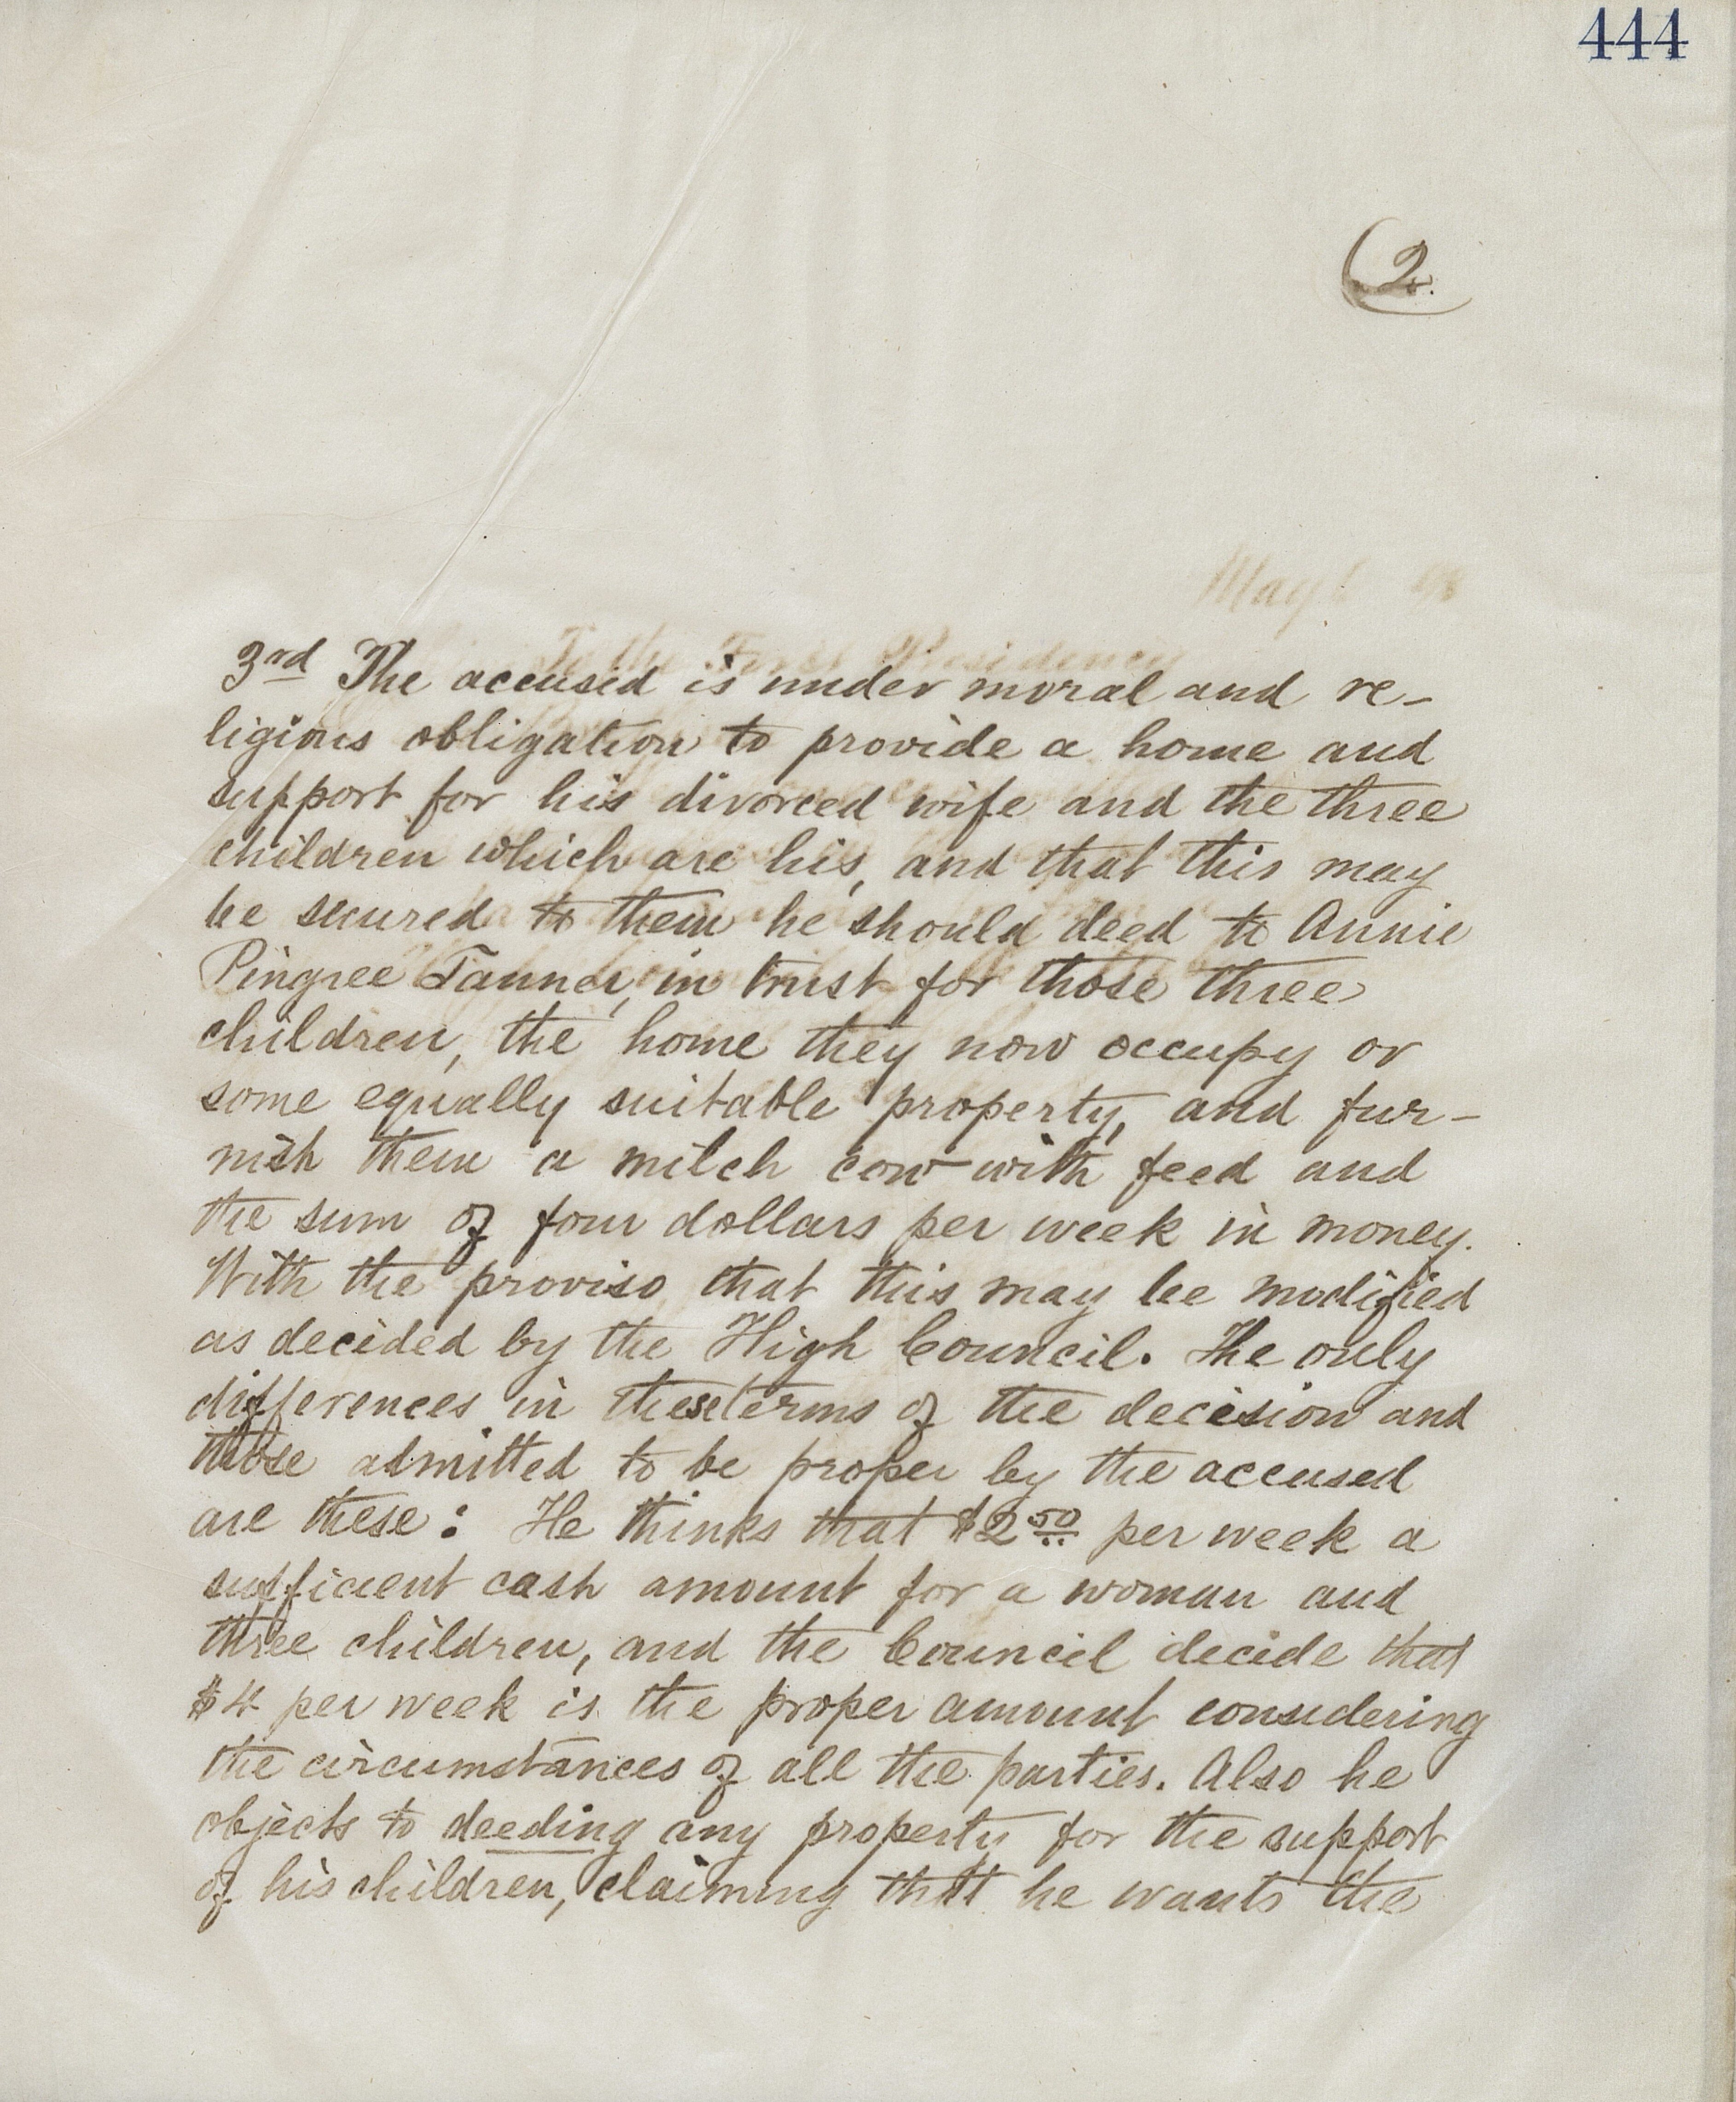 444
(2.
May
To the First Presidency
3rd The accused is under moral and re-
ligious obligation to provide a home and
support for his divorced wife and the three
children which are his, and that this may
be secured to them he should deed to Annie
Pingree Tanner, in trust for those three
children, the home they now occupy or
some equally suitable property, and fur-
nish them a milch cow with feed and
the sum of four dollars per week in money.
With the proviso that this may be modified
as decided by the High Council. The only
differences in these terms of the decision and
those admitted to be proper by the accused
are these: He thinks that $2.50 per week a
sufficient cash amount for a woman and
three children, and the Council decide that
$4 per week is the proper amount considering
the circumstances of all the parties. Also he
objects to deeding any property for the support
of his children, claiming that he wants the